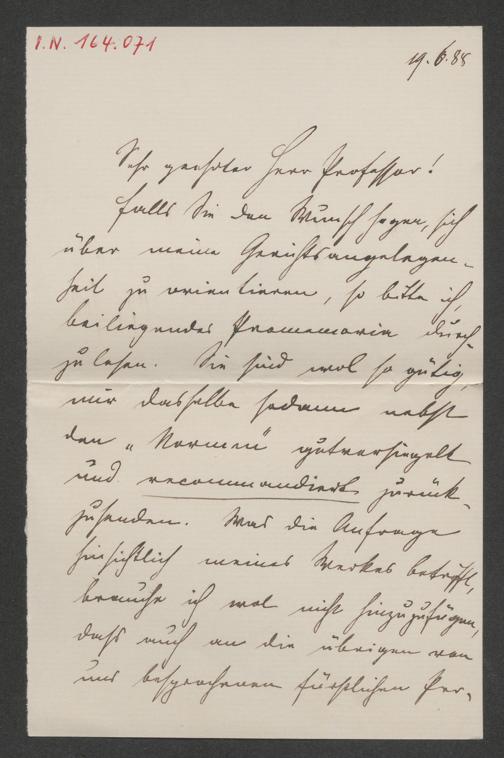 I.N. 164.071
19.6.88
Sehr geehrter Herr Professor!
Falls Sie den Wunsch hegen, sich
über meine Gerichtsangelegen-
heit zu orientieren, so bitte ich,
beiliegendes Promemoria durch
zu lesen. Sie sind wol so gütig,
mir dasselbe sodann nebst
den „Normen" gutversiegelt
und recommandiert zurück-
zusenden. Was die Anfrage
hinsichtlich meines Werkes betrifft,
brauche ich wol nicht hinzuzufügen,
dass auch an die übrigen von
uns besprochenen fürstlichen Per-